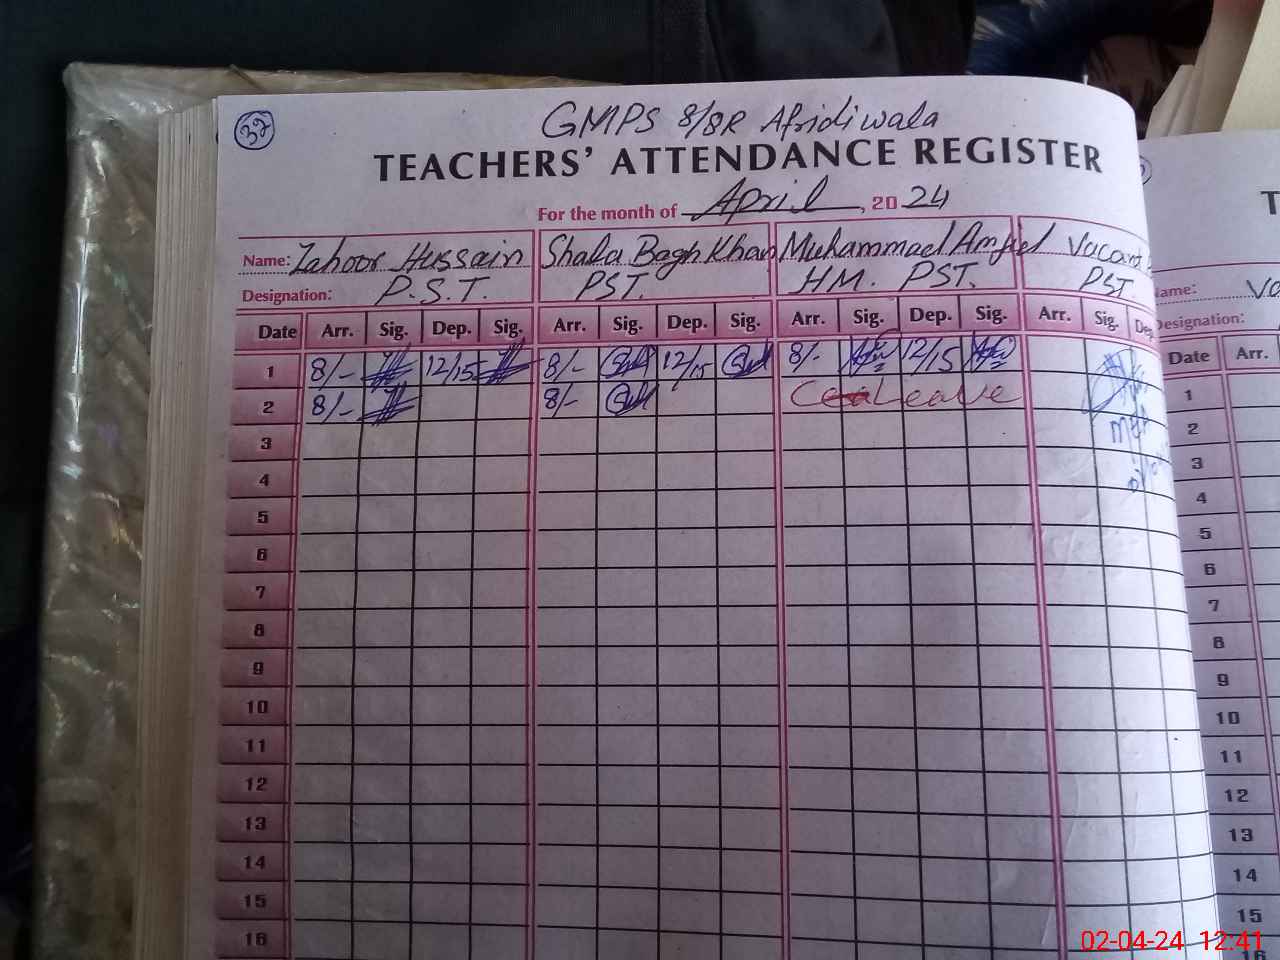 32
GMPS 8/8R Afridiwala
TEACHERS' ATTENDANCE REGISTER
For the month of April, 2024
Name: Zahoor Hussain Shala Bagh Khan Muhammad Amjed Vacant
Designation: P.S.T. PST. HM. PST. PST.
Date Arr. Sig. Dep. Sig. Arr. Sig. Dep. Sig. Arr. Sig. Dep. Sig. Arr. Sig.
1 8/- 12/15 8/- 12/15 8/- 12/15
2 8/- 8/- Leave
3
4
5
6
7
8
9
10
11
12
13
14
15
16
T
Name:
Designation:
Date Arr.
1
2
3
4
5
6
7
8
9
10
11
12
13
14
15
16
02-04-24 12:41